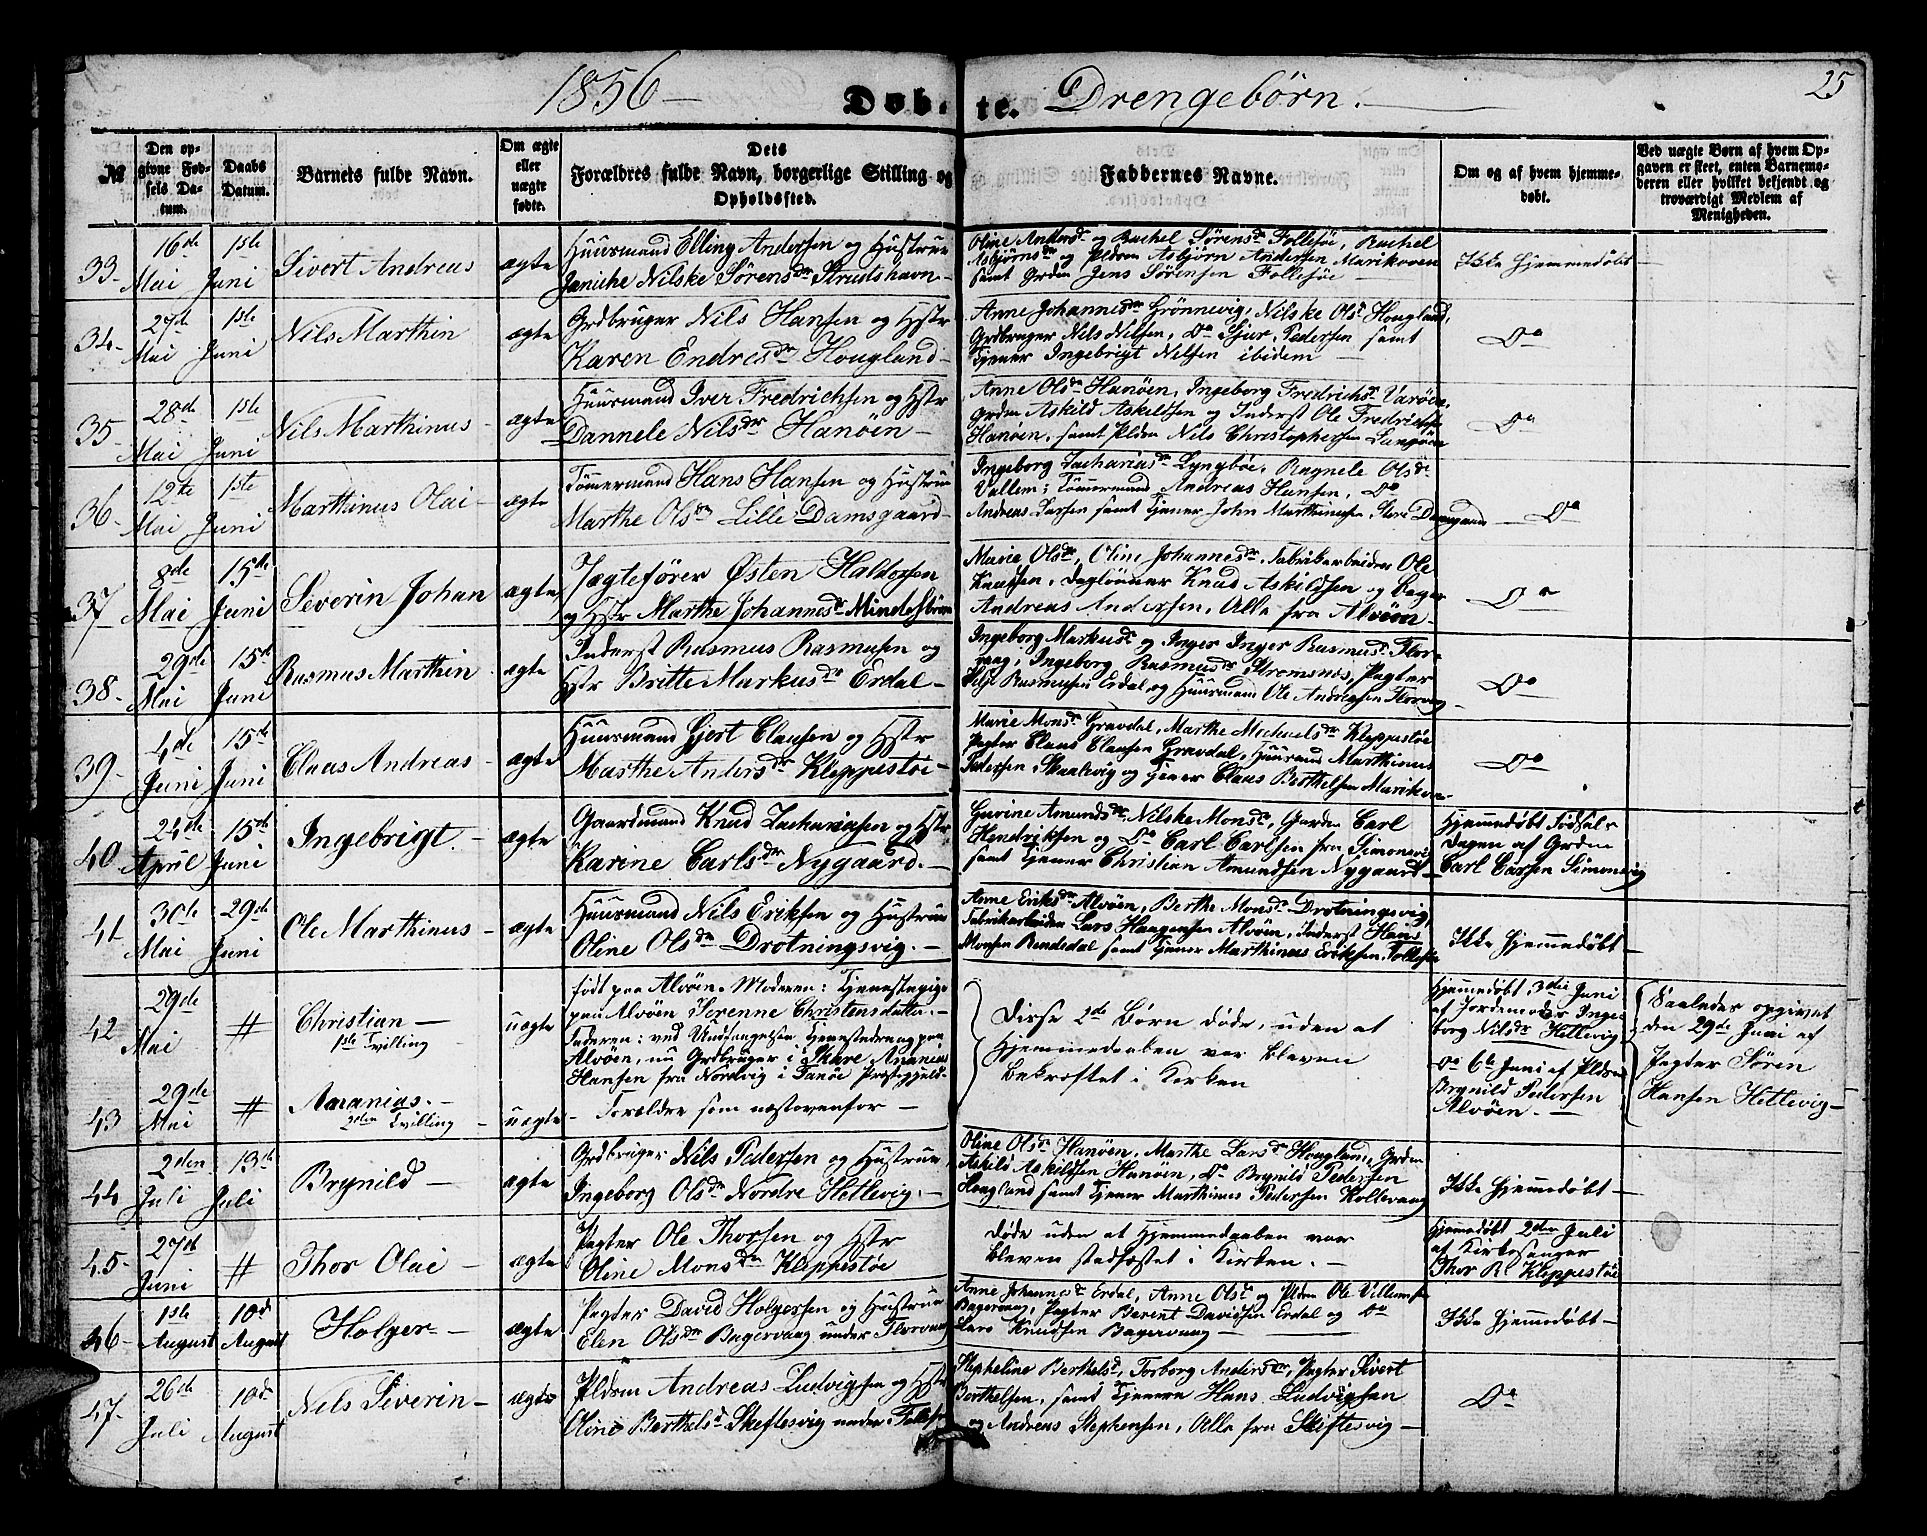 1856 — Døb- te. Drengebørn. — 25
№
Den op-
givne Fød-
sels Da-
tum.
Daabs
Datum.
Barnets fulde Navn.
Om ægte
eller
uægte
fødte.
Dets
Forældres fulde Navn, borgerlige Stilling og
Opholdssted.
Faddernes Navne.
Om og af hvem hjemme-
døbt.
Ved uægte Børn af hvem Op-
gaven er skeet, enten Barnemo-
deren eller hvilket bekjendt og
troværdigt Medlem af
Menigheden.
33.
16de
Mai
1ste
Juni
Sivert Andreas
ægte
Huusmand Elling Andersen og Hustrue
Janiche Nilske Sørensdr Strudshavn
Oline Andersdr og Rachel Sørensdr Follesøe, Rachel
Asbjørnsdr og Pldsm Asbjørn Andersen Marikoven
samt Grdm Jens Sørensen Follesøe
Ikke hjemmedøbt —
34.
27de
Mai
1ste
Juni
Nils Marthin
ægte
Grdbruger Nils Hansen og Hstr
Karen Endresdr Hougland
Anne Johannesdr Grønnevig, Nilske Olsd Hougland,
Grdbruger Nils Nilsen, Do Sjur Pedersen samt
Tjener Ingebrigt Nilsen ibidem —
Do
35.
28de
Mai
1ste
Juni
Nils Marthinus
ægte
Huusmand Iver Fredrichsen og Hstr
Dannele Nilsdr Hanøen —
Anne Olsdr Hanøen, Ingeborg Fredrichsd Varøen,
Grdm Askild Askildsen og Inderst Ole Fredrichsen
Hanøen, samt Pldsm Nils Christophersen Langøen
Do
36.
12te
Mai
1ste
Juni
Marthinus Olai
ægte
Tømmermand Hans Hansen og Hustrue
Marthe Olsdr Lille Damsgaard
Ingeborg Zachariasdr Lyngbøe, Ragnele Olsdr
Vallem; Tømmermand Andreas Hansen, Do
Andreas Larsen samt Tjener John Marthinusen Store Damsgaard
Do
37
8de
Mai
15de
Juni
Severin Johan
ægte
Jægtefører Østen Haldorsen
og Hstr Marthe Johannesdr Mindesbroen
Marie Olsdr, Oline Johannesdr, Fabrikarbeider Ole
Knudsen, Daglønner Knud Askildsen og Bager
Andreas Andersen, Alle fra Alvøen
Do
38.
29de
Mai
15de
Juni
Rasmus Marthin
ægte
Inderst Rasmus Rasmusen og
Hstr Britte Markusdr Erdal —
Ingeborg Markusdr og Inger Inger Rasmusd Flor-
vaag, Ingeborg Rasmusdr Strømsnes, Pagter
Silje Rasmusen Erdal og Huusmand Ole Andreasen Florvaag
Do
39.
4de
Juni
15de
Juni
Claas Andreas
ægte
Huusmand Gjert Clausen og Hstr
Marthe Andersdr Kleppestøe
Marie Monsdr Gravdal, Marthe Michaelsdr Kleppestøe
Pagter Claus Clausen Gravdal, Huusmd Marthinus
Pedersen Skaalevig og Tjener Claus Berthelsen Marikoven
Do
40
24de
April
15de
Juni
Ingebrigt.
ægte
Gaardmand Knud Zachariasen og Hstr
Karine Carlsdr Nygaard. —
Gurine Amundsdr, Nilske Monsdr, Gardm Carl
Hendriksen og Do Carl Carlsen fra Simonsvig
samt Tjener Christian Amundsen Nygaard
Hjemmedøbt Fødsels-
Dagen af Grdm
Carl Carsen Simonsvig
41
30te
Mai
29de
Juni
Ole Marthinus
ægte
Huusmand Nils Eriksen og Hustrue
Oline Olsdr Drotningsvig. —
Anne Eriksdr Alvøen, Berthe Monsdr Drotningsvig,
Fabrikarbeider Lars Haagensen Alvøen, Inderst Hans
Monsen Rendedal samt Tjener Marthinus Eriksen Follesøe
Ikke hjemmedøbt —
42
29de
Mai
#
Christian —
1ste Tvilling
uægte
født paa Alvøen. Moderen: Tjenestepige
paa Alvøen Serenne Christensdatter. —
Faderen: ved Undfangelsen Tjenestedreng paa
Alvøen, nu Grdbruger i Skare Ananias
Hansen fra Nordvig i Fanøe Præstegjeld.
Disse 2de Børn døde, uden at
Hjemmedaaben var bleven
bekræftet i Kirken
Hjemmedøbt 3die Juni
af Jordemoder Inge-
borg Nilsdr Hetlevig
Saaledes opgivet
den 29de Juni af
Pagter Søren
Hansen Hetlevig —
43
29de
Mai
#
Ananias. —
2den Tvilling
uægte
Forældre som næstovenfor —
Do 6te Juni af Pldsm
Brynild Pedersen
Alvøen. —
44
2den
Juli
13de
Juli
Brynild —
ægte
Grdbruger Nils Pedersen og Hustrue
Ingeborg Olsdr Nordre Hetlevig. —
Oline Olsdr Hanøen, Marthe Larsdr Hougland, Grdm
Askild Askildsen Hanøen, Do Brynild Pedersen
Hougland samt Tjener Marthinus Pedersen Kollevaag
Ikke hjemmedøbt —
45.
27de
Juni
#
Thor Olai —
ægte
Pagter Ole Thorsen og Hstr
Oline Monsdr Kleppestøe
Døde uden at Hjemmedaaben var
bleven stadfæstet i Kirken. —
Hjemmedøbt 2den Juli
af Kirkesanger
Thor R. Kleppestøe
46
1ste
August
10de
August
Holger —
ægte
Pagter David Holgersen og Hustrue
Elen Olsdr Bagervaag under Florvaag
Anne Johannesd Erdal, Anne Olsd og Pldsm Ole Villumsen
Bagervaag, Pagter Berent Davidsen Erdal og Do
Lars Knudsen Bagervaag —
Ikke hjemmedøbt —
47.
26de
Juli
10de
August
Nils Severin
ægte
Pldsm Andreas Ludvigsen og Hstr
Oline Berthelsd Skeftesvig under Follesøe
Stepheline Berthelsd, Torborg Andersdr, Pagter Sivert
Berthelsen, samt Tjenere Hans Ludvigsen
og Andreas Stephensen, Alle fra Skiftesvig —
Do